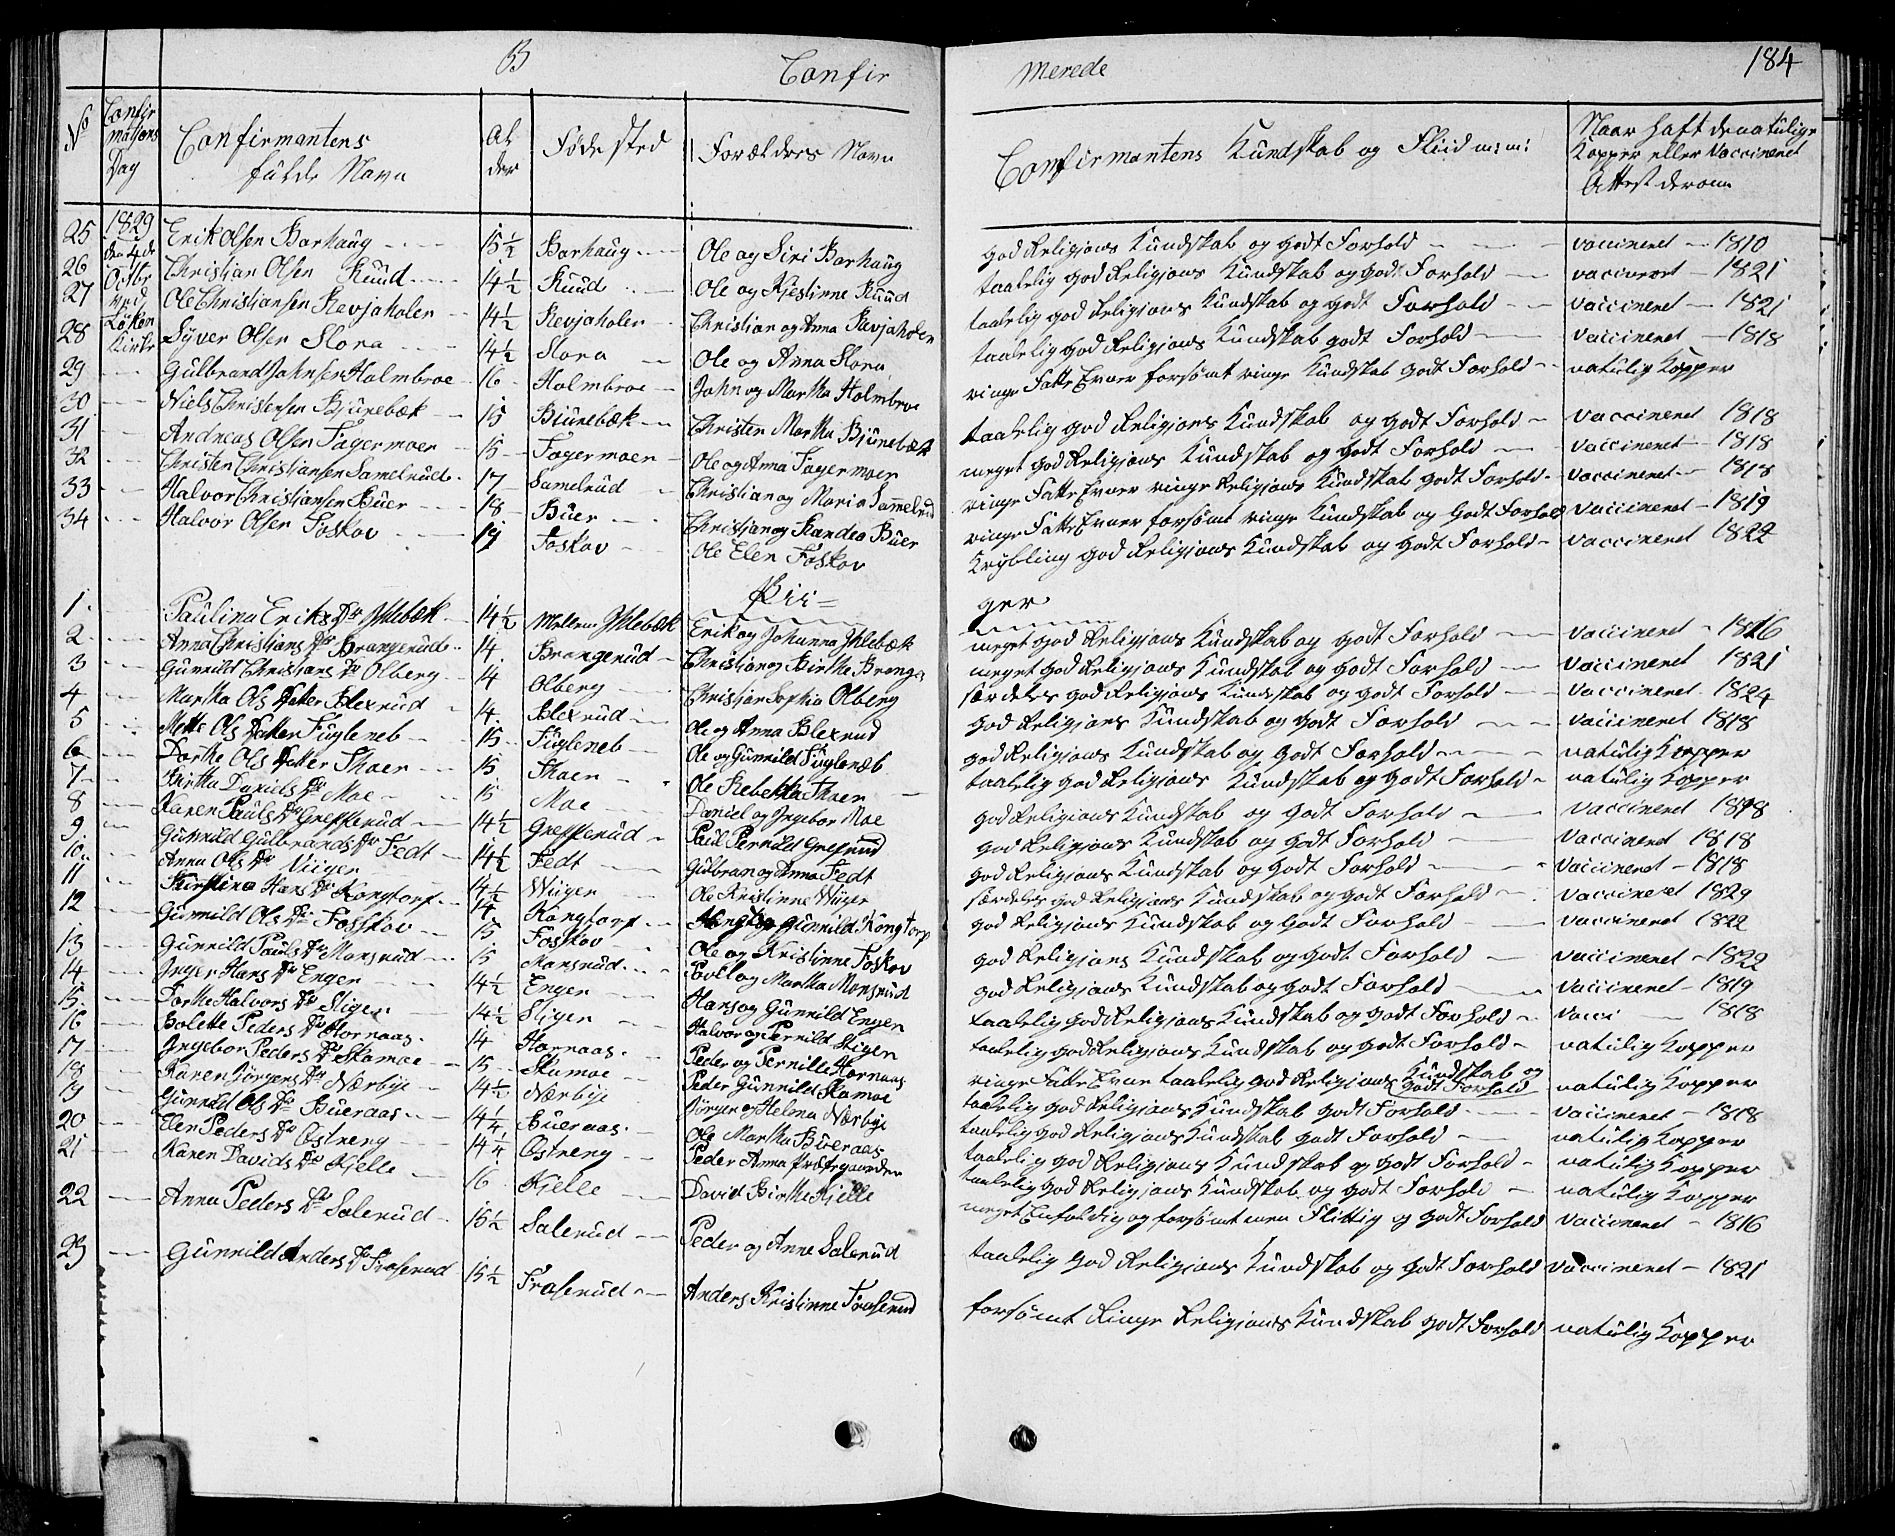 B
Confir
merede
184
No
Confir mations Dag
Confirmantens fulde Navn
Al der
Fødested
Forælders Navn
Confirmantens Kundskab og Fliid m: m:
Naar haft de natulige Kopper eller Vaccineret Attest derom
1829 den 4de Octbr ved Løken Kirke
25 Erik Olsen Barhaug 15½ Barhaug Ole og Siri Barhaug god Religions Kundskab og godt Forhold vaccineret 1810
26 Christian Olsen Ruud 14½ Ruud Ole og Kjestinne Ruud taalelig god Religions Kundskab og godt Forhold vaccineret 1821
27 Ole Christiansen Revjaholen 14½ Revjaholen Christian og Anna Revjaholen taalelig god Religions Kundskab og godt Forhold vaccineret 1821
28 Syver Olsen Slora 14½ Slora Ole og Anna Slora taalelig god Religions Kundskab godt Forhold vaccineret 1818
29 Gulbrand Johnsen Holmbroe 16 Holmbroe John og Martha Holmbroe ringe Fatte Evner forsømt ringe Kundskab godt Forhold natulig Kopper
30 Niels Christensen Bjünebæk 15 Biünebæk Christen Martha Bjünebæk taalelig god Religions Kundskab og godt Forhold vaccineret 1818
31 Andreas Olsen Fagermoen 15 Fagermoen Ole og Anna Fagermoen meget god Religions Kundskab og godt Forhold vaccineret 1818
32 Christen Christiansen Samelrud 17 Samelrud Christian og Maria Samelrud ringe Fatte Evner ringe Religions Kundskab godt Forhold vaccineret 1818
33 Halvor Christiansen Büer 18 Büer Christian og Randea Büer ringe Fatte Evner forsømt ringe Kundskab og godt Forhold vaccineret 1819
34 Halvor Olsen Foskov 19 Foskov Ole Elen Foskov Krybling god Religions Kundskab og godt Forhold vaccineret 1822
Pii=
ger
1 Paulina Eriks Dr Ihlebæk 14½ Mellem Ihlebæk Erik og Johanna Ihlebæk meget god Religions Kundskab og godt Forhold vaccineret 1816
2 Anna Christians Dr Brangerud 14 Brangerud Christian og Birthe Brange meget god Religions Kundskab og godt Forhold vaccineret 1821
3 Gunnild Christians Dr Olberg 14 Olberg Christian Sophia Olberg særdeles god Religions Kundskab og godt Forhold vaccineret 1824
4 Martha Ols Datter Blexrud 14 Blexrud Ole og Anna Blexrud god Religions Kundskab og godt Forhold vaccineret 1818
5 Mette Ols Datter Fugleneb 15 Fugleneb Ole og Gunnild Fuglenæb god Religions Kundskab og godt Forhold natulig Kopper
6 Dorthe Ols Datter Thoer 15 Thoen Ole Rebekka Thoen taalelig god Religions Kundskab og godt Forhold natulig Kopper
7 Birtha Daniels Dr Moe 15 Moe Daniel og Ingebor Moe god Religions Kundskab og godt Forhold vaccineret 1818
8 Karen Pauls Dr Grefserud 14½ Grefserud Paul Pernild Grefsrud god Religions Kundskab og godt Forhold vaccineret 1818
9 Gunnild Gulbrands Dr Fedt 14½ Fedt Gulbran og Anna Fedt god Religions Kundskab og godt Forhold vaccineret 1818
10 Anna Ols Dr Wiiger 14½ Wiiger Ole Kristinne Wiiger særdeles god Religions Kundskab og godt Forhold vaccineret 1829
11 Kirstina Hans Dr Kongtorp 14 Kongtorp Hans og Gunnild Kongtorp god Religions Kundskab og godt Forhold vaccineret 1822
12 Gunnild Ols Dr Fosskov 15 Foskov Ole og Kristinne Foskov god Religions Kundskab og godt Forhold vaccineret 1822
13 Gunnild Pauls Dr Monsrud 15 Monsrud Povel og Martha Monsrud god Religions Kundskab og godt Forhold vaccineret 1819
14 Inger Hans Dr Enger 14½ Enger Hans og Gunnild Engen taalelig god Religions Kundskab og godt Forhold vacci 1818
15 Dorthe Halvors Dr Stigen 14½ Stigen Halvor og Pernild Stigen taalelig god Religions Kundskab og godt Forhold natulig Kopper
16 Bolette Peders Dr Hornaas 14 Hornaas Peder og Pernille Hornaas ringe Fatte Evne taalelig god Religions Kundskab og godt Forhold natulig Kopper
17 Ingebor Peders Dr Skamoe 15 Skamoe Peder Gunnild Skamoe taalelig god Religions Kundskab godt Forhold vaccineret 1818
18 Karen Jörgens Dr Nærbye 14½ Nærbye Jörgen og Helena Nærbye taalelig god Religions Kundskab godt Forhold natulig Kopper
19 Gunnild Ols Dr Bueraas 14¼ Bueraas Ole Martha Bueraas taalelig god Religions Kundskab og godt Forhold natulig Kopper
20 Elen Peders Dr Østreng 14¼ Østreng Peder Anna Præstegaarden taalelig god Religions Kundskab og godt Forhold natulig Kopper
21 Karen Davids Dr Kjelle 16 Kjelle David Birthe Kjelle meget Enfoldig og forsømt men Flittig og godt Forhold vaccineret 1816
22 Anna Peders Dr Solerud 15½ Solerud Peder og Anne Solerud taalelig god Religions Kundskab og godt Forhold vaccineret 1821
23 Gunnild Anders Dr Froserud 15½ Froserud Anders Kristinne Froserud forsømt Ringe Religions Kundskab godt Forhold natulig Kopper